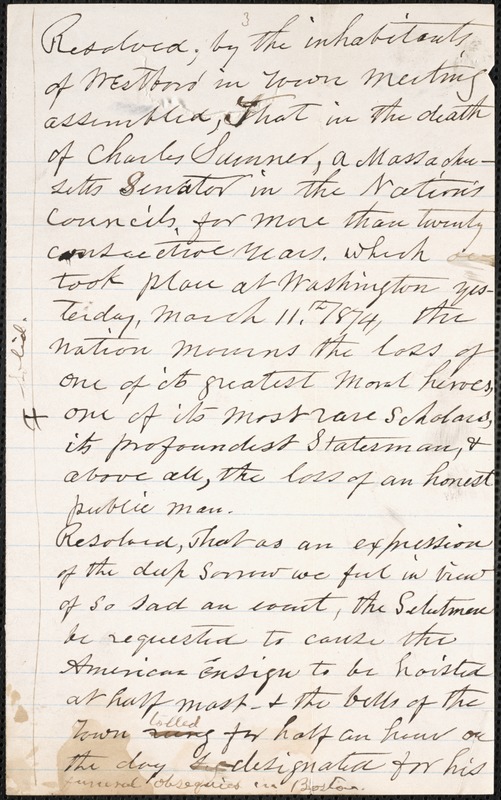 3
Resolved, by the inhabitants
of Westboro' in Town meeting
assembled, That in the death
of Charles Sumner, a Massachu-
setts Senator in the Nation's
Councils, for more than twenty
consecutive years. which
took place at Washington yes-
terday, March 11.th 1874, the
nation mourns the loss of
one of its greatest moral heroes,
one of its most rare Scholars,
its profoundest Statesman, &
above all, the loss of an honest
public man.
Resolved, That as an expression
of the deep sorrow we feel in view
of so sad an event, the Selectmen
be requested to cause the
American Ensign to be hoisted
at half mast - & the bells of the
Town rung tolled for half an hour on
the day designated for his
funeral obsequies in Boston.